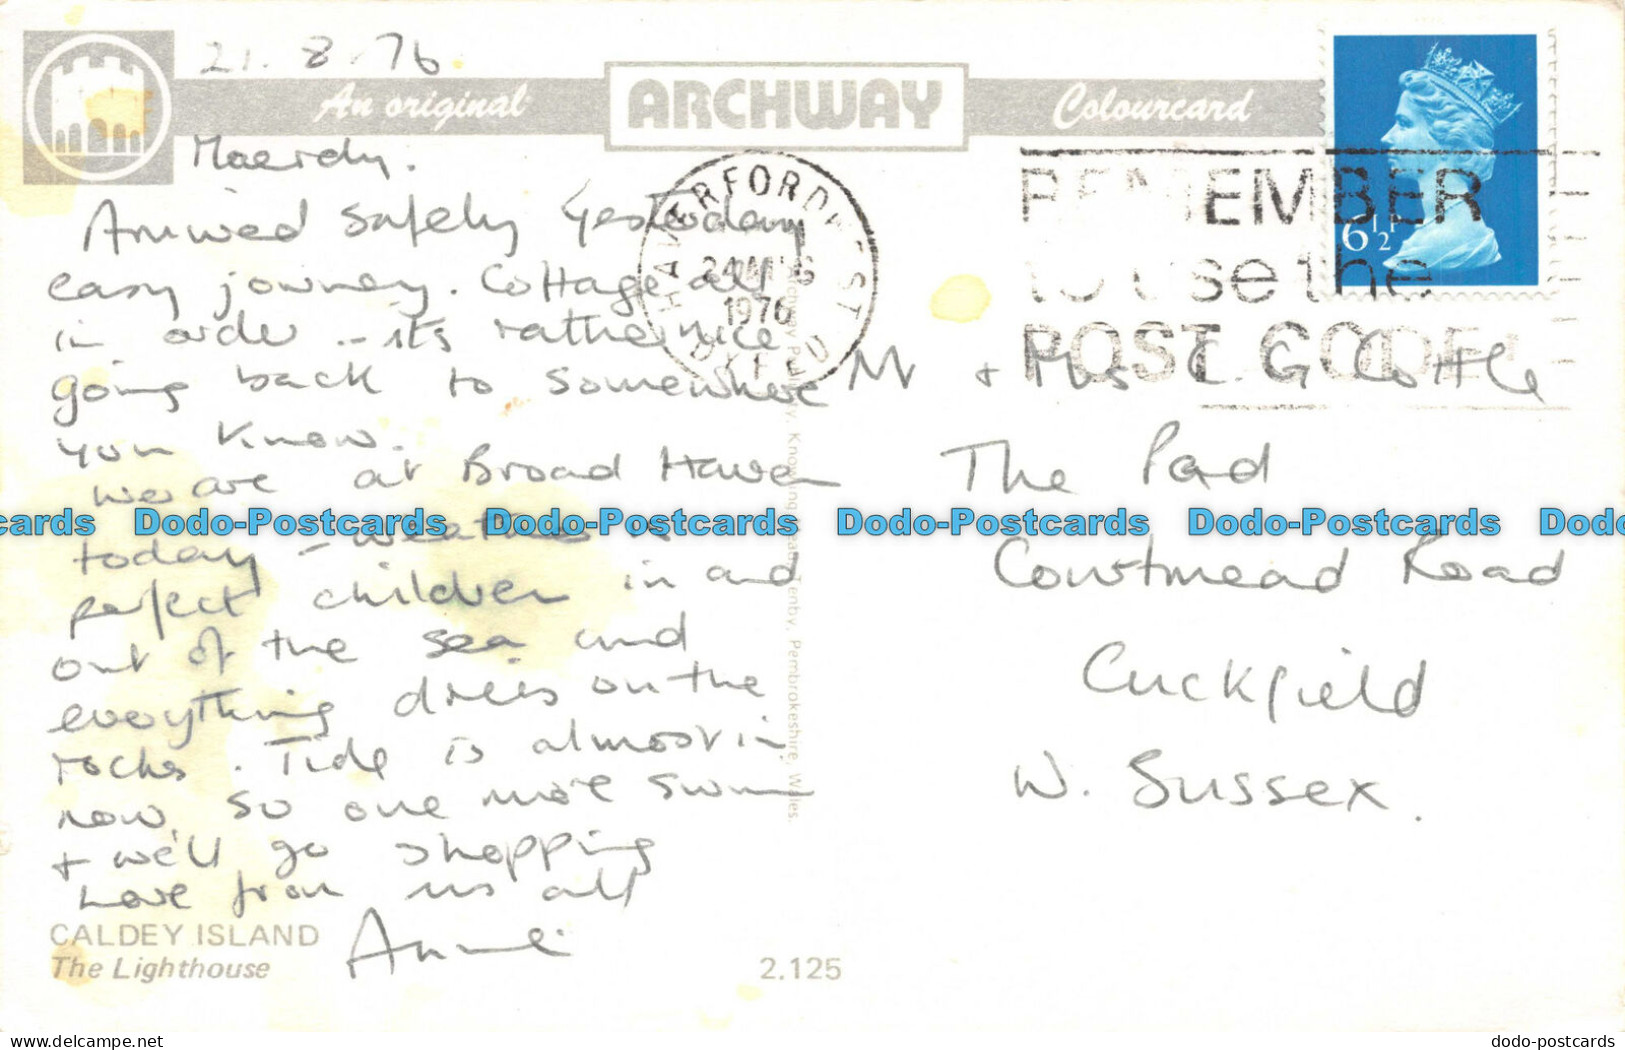 21.8.76
An original ARCHWAY Colourcard
Maerdy.
Arrived safely yesterday
easy journey. Cottage all
in order - its rather nice
going back to somewhere
you know.
We are at Broad Haven
today - weather is
perfect children in and
out of the sea and
everything dries on the
rocks. Tide is almost in
now so one more swim
+ we'll go shopping
Love from us all
Annie
CALDEY ISLAND
The Lighthouse
2.125
HAVERFORDWEST
24 AUG
1976
DYFED
REMEMBER
to use the
POST CODE
6½P
Mr + Mrs C. G. Cottle
The Pad
Courtmead Road
Cuckfield
W. Sussex.
Tenby, Pembrokeshire, Wales.
Dodo-Postcards Dodo-Postcards Dodo-Postcards Dodo-Postcards
Delcampe.net
dodo-postcards